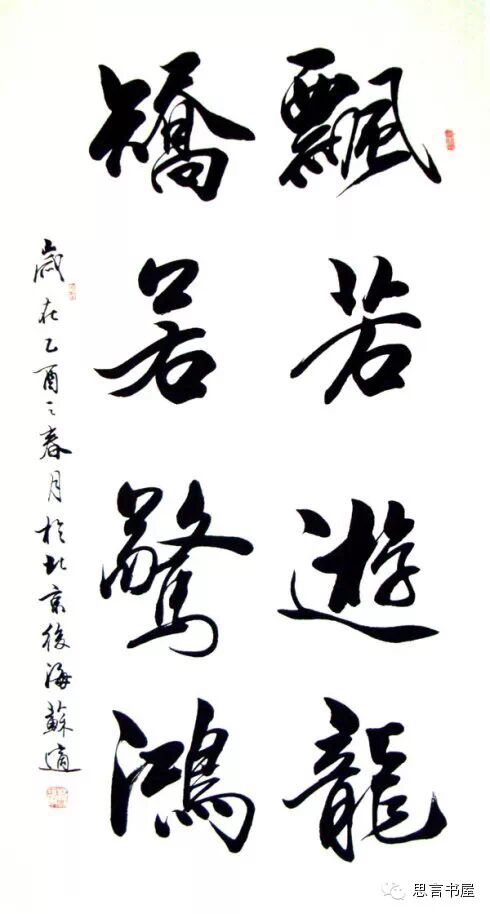 飄若遊龍
矯若驚鴻
歲在乙酉之春月於北京後海蘇適
思言书屋